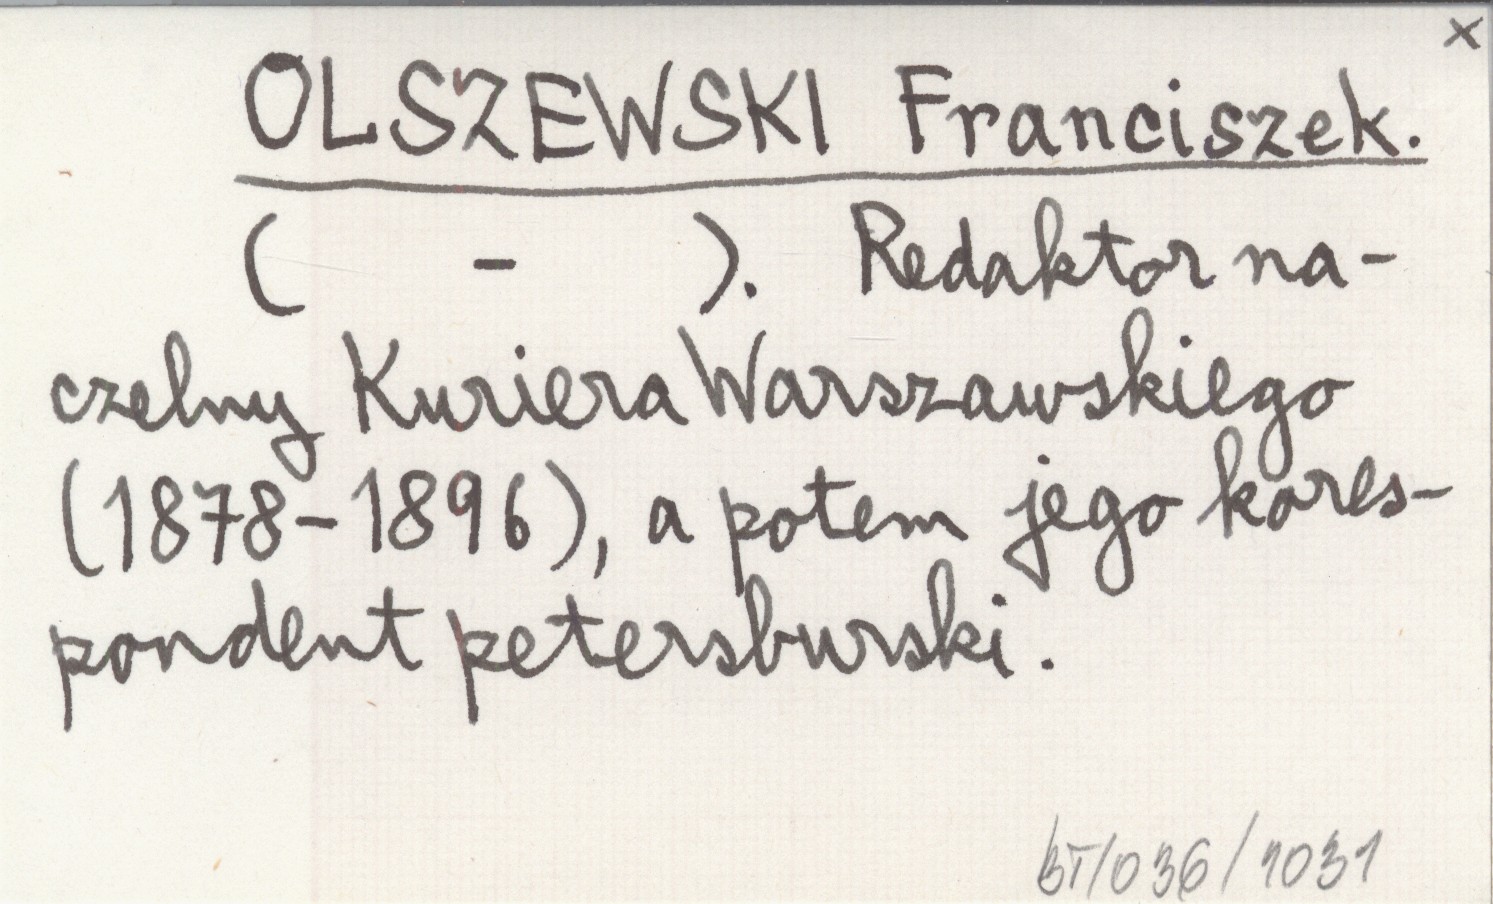 x
OLSZEWSKI Franciszek.
( - ). Redaktor na-
czelny Kuriera Warszawskiego
(1878-1896), a potem jego kores-
pondent petersburski.
BT/036/1031